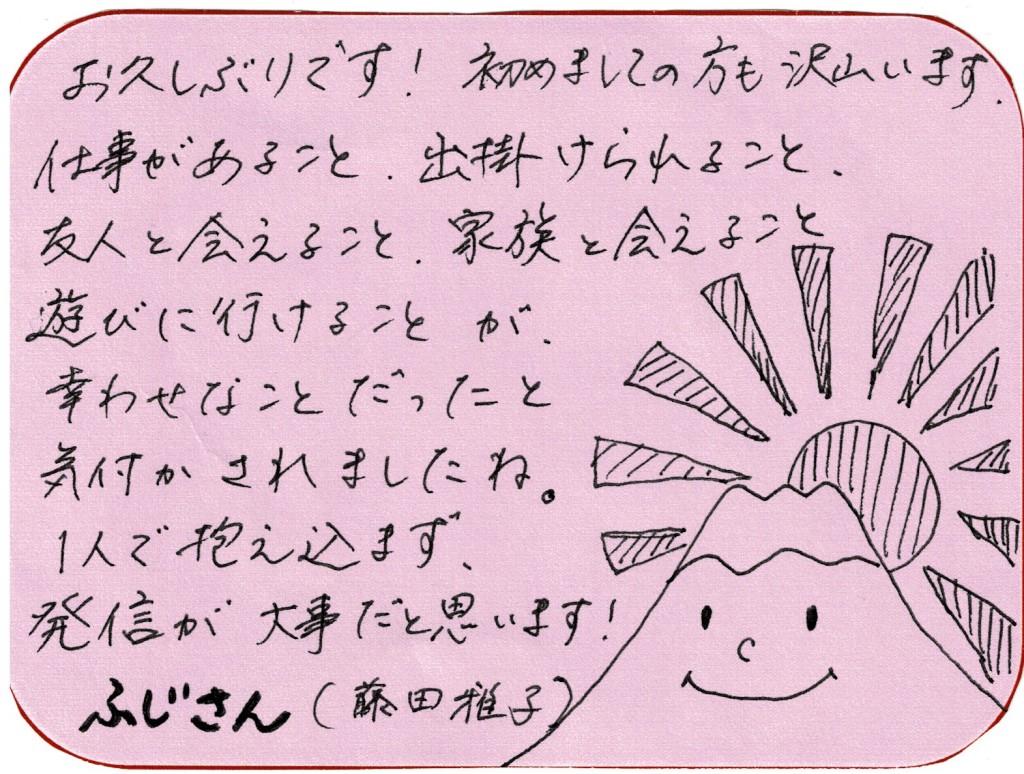 お久しぶりです! 初めましての方も沢山います.
仕事があること、出掛けられること、
友人と会えること、家族と会えること
遊びに行けることが、
幸わせなことだったと
気付かされましたね。
1人で抱え込まず、
発信が大事だと思います!
ふじさん(藤田雅子)